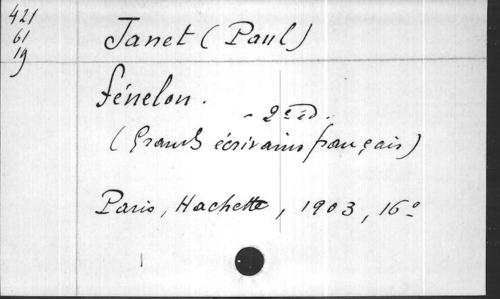 421
61
19
Janet (Paul)
Fénelon.
- 2e éd.
(Grands écrivains français)
Paris, Hachette, 1903, 16o